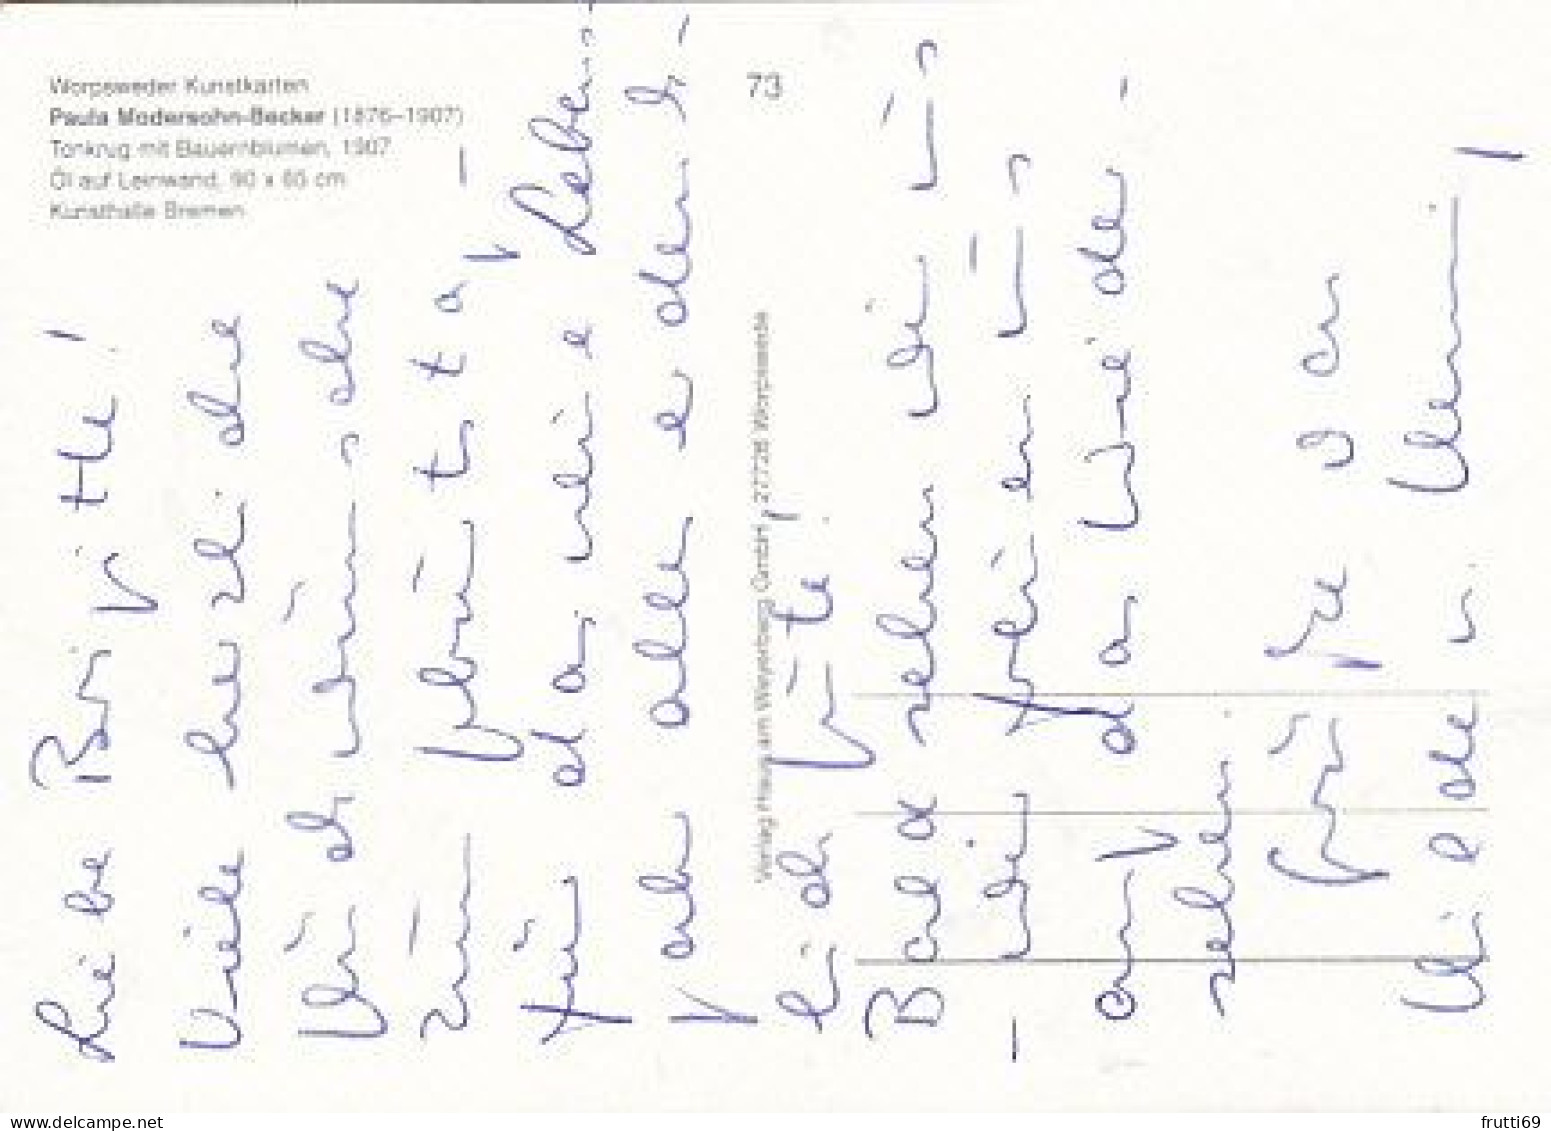 Worpsweder Kunstkarten
Paula Modersohn-Becker (1876–1907)
Tonkrug mit Bauernblumen, 1907
Öl auf Leinwand, 90 x 65 cm
Kunsthalle Bremen
73
Verlag Haus am Weyerberg GmbH, 27726 Worpswede
Liebe Brigitte!
Viele herzliche
Glückwünsche
zum Geburtstag -
für das neue Lebens-
jahr alles erdenk-
lich Gute.
Bald sehen wir uns
- wir freuen uns
auf das Wieder-
sehen.
und
delcampe.net
frutti69